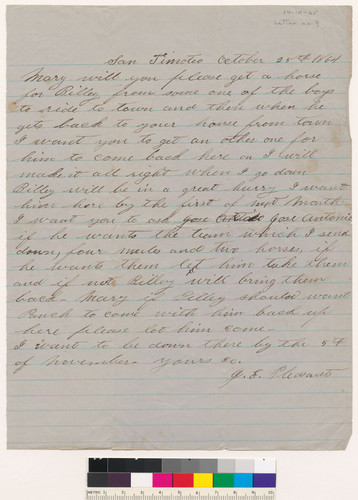 San Timoteo October 25th 1864
Mary will you please get a horse
for Billey from some one of the boys
to ride to town and then when he
gets back to your house from town
I want you to get an other one for
him to come back here on I will
make it all right when I go down
Billey will be in a great hurry I want
him here by the first of next Month
I want you to ask Jose Antonio
if he wants the team which I send
down, four mules and two horses, if
he wants them let him take them
and if not Billey will bring them
back. Mary if Billey should want
Punch to come with him back up
here please let him come.
I want to be down there by the 5th
of November. yours &c.
J. E. Pleasants